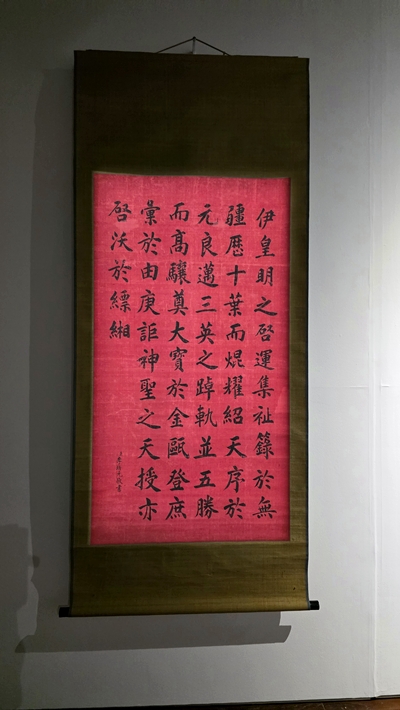 伊皇明之啓運集祉籙於無
疆歷十葉而焜耀紹天序於
元良邁三英之踔軌並五勝
而高驤奠大寶於金甌登庶
彙於由庚詎神聖之天授亦
啓沃於縹緗